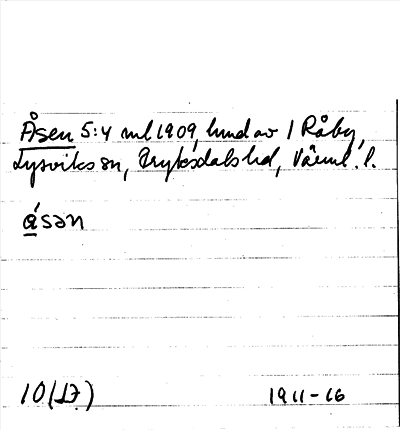 Åsen 5:4 ml 1909, hmd av 1 Råby,
Lysviks sn, Fryksdals hd, Värml. l.
åsən
10 (LD)
1911-16